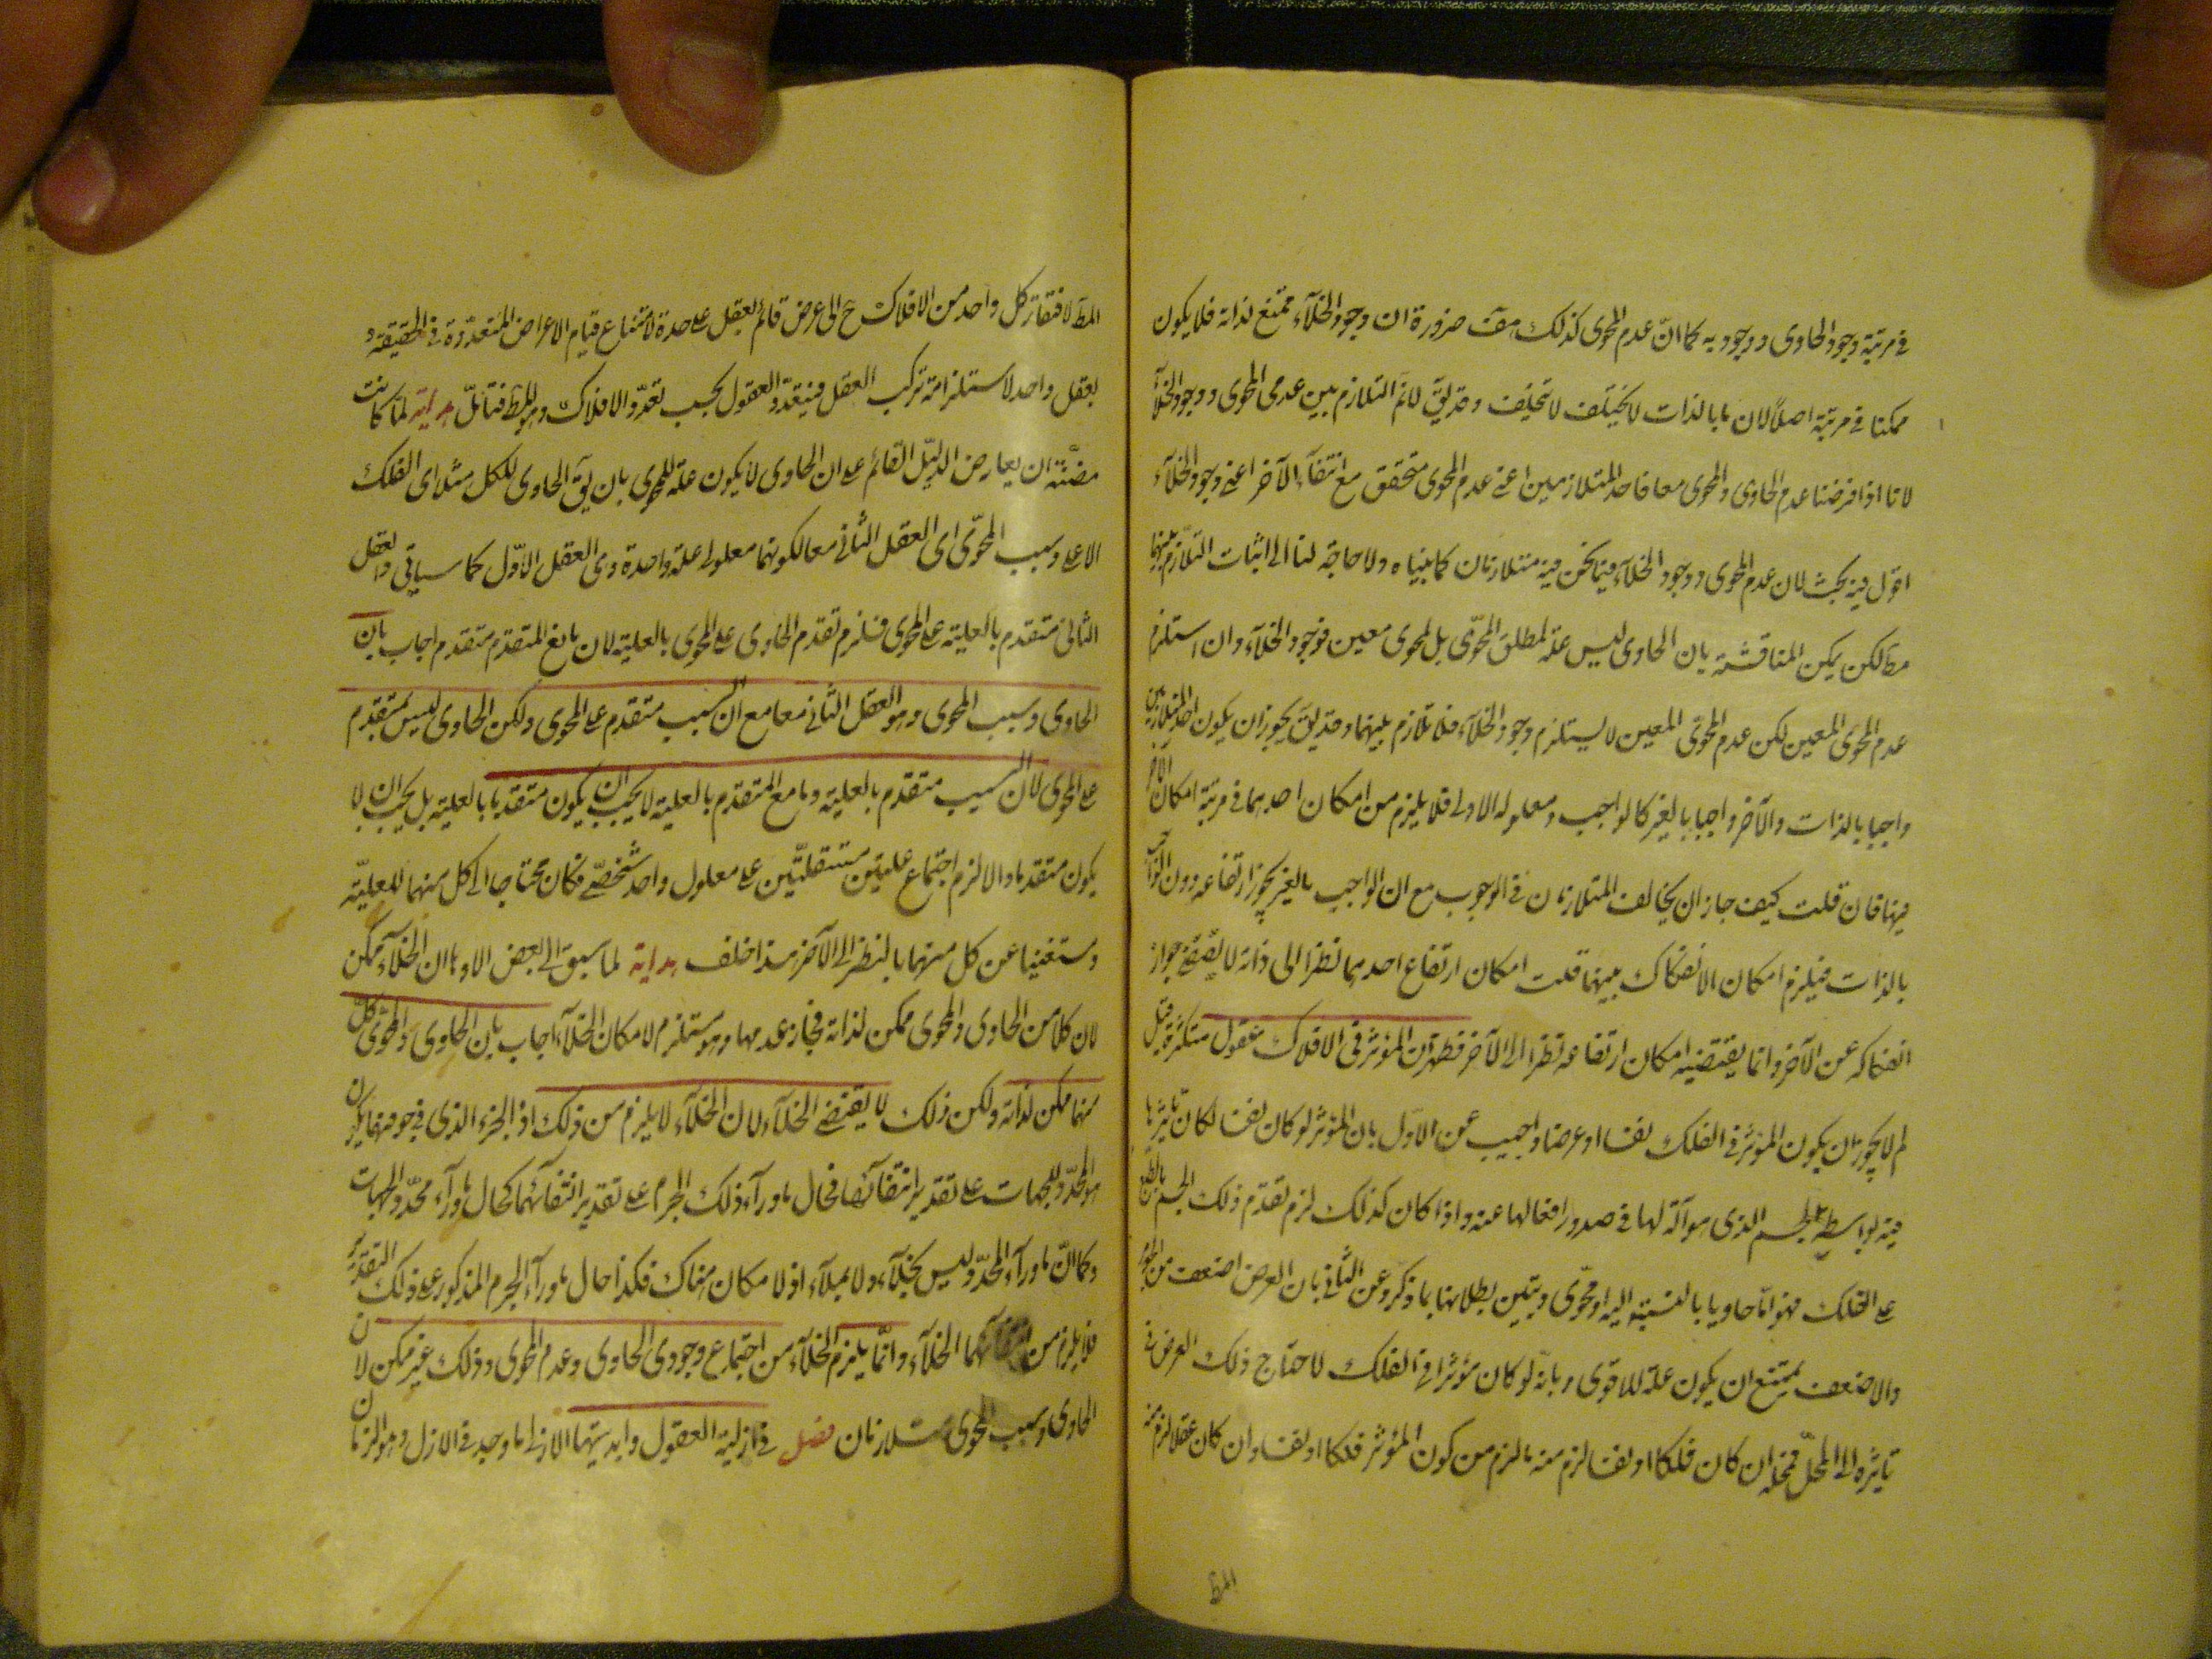 في مرتبة وجود الحاوي ووجوديه كما انّ عدم المحوى كذلك هف ضرورة ان وجود الخلآء ممتنع لذاته فلا يكون
ممكنا في مرتبة اصلًا لان ما بالذات لا يختلف لا يتخلف وقد يقَ لا نمَ التلازم بين عدمى المحوى ووجود الخلآء
لانا اذا فرضنا عدم الحاوى والمحوى معا فاحد المتلازمين اعنى عدم المحوى متحقق مع انتفآء الآخر اعنى وجود الخلآء
اقول فيه بحث لان عدم المحوى ووجود الخلآء فيما نحن فيه متلازمان كما بيناه ولا حاجة لنا الى اثبات التلازم بينهما
مط لكن يمكن المناقشة بان الحاوى ليس علة لمطلق المحوّى بل لمحوى معين فوجود الخلآء وان استلزم
عدم المحوى المعين لكن عدم المحوّى المعين لا يستلزم وجود الخلآء فلا تلازم بينهما وقد يقَ يجوز ان يكون احد المتلازمين
واجبا بالذات والآخر واجبا بالغير كالواجب ومعلوله الاول فلا يلزم من امكان احدهما في مرتبة امكان الآخر
فيها فان قلت كيف جاز ان يخالف المتلازمان في الوجوب مع ان الواجب بالغير يجوز ارتفاعه دون الواجب
بالذات فيلزم امكان الانفكاك بينهما قلت امكان ارتفاع احدهما نظرا الى ذاته لا يقتضى جواز
انفكاكه عن الآخر وانما يقتضيه امكان ارتفاعه نظرا الى الآخر فظهر ان المؤثر في الافلاك عقول متكثرة قيل
لم لا يجوز ان يكون المؤثر في الفلك نفسا او عرضا واجيب عن الاوّل بان المؤثر لو كان نفسا لكان تاثيرها
فيه بواسطة الجسم الذى هو آلة لها في صدور افعالها عنه واذا كان كذلك لزم تقدم ذلك الجسم بالطبع
على الفلك فهو امّا حاويا بالنسبة اليه او محوّى وتبين بطلانهما بما ذكر وعن الثانى بان العرض اضعف من الجوهر
والاضعف يمتنع ان يكون علة للاقوى وبانّه لو كان مؤثرا في الفلك لاحتاج ذلك العرض في
تاثيره الى المحلّ فمحله ان كان فلكا او نفسا لزم منه ما لزم من كون المؤثر فلكا او نفسا وان كان عقلا لزم منه
المط
المط لافتقار كل واحد من الافلاك ح الى عرض قائم بعقل على حدة لامتناع قيام الاعراض المتعدّدة في الحقيقة
بعقل واحد لاستلزامه تركب العقل فيتعدّد العقول بحسب تعدّد الافلاك وهو المط فتامّل هداية لما كانت
مضنّة ان يعارض الدليّل القائم على ان الحاوى لا يكون علة للمحوى بان يقَ الحاوى للكل مثلا اى الفلك
الاعلى وسبب المحوّى اى العقل الثانى معا لكونهما معلولى علة واحدة وهى العقل الاوّل كما سياتى والعقل
الثانى متقدم بالعلية على المحوى فلزم تقدم الحاوى على المحوى بالعلية لان ما مع المتقدم متقدم اجاب بان
الحاوى وسبب المحوى وهو العقل الثانى معا مع ان السبب متقدم على المحوى ولكن الحاوى ليس بمتقدم
على المحوى لان السبب متقدم بالعلية وما مع المتقدم بالعلية لا يجب ان يكون متقدما بالعلية بل يجب ان لا
يكون متقدما والا لزم اجتماع علتين مستقلتّين على معلول واحد شخصّى فكان محتاجا الى كل منهما للعليّة
ومستغنيا عن كل منهما بالنظر الى الآخر هذا خلف هداية لما سبق الى بعض الاوهام ان الخلآء ممكن
لان كلا من الحاوى والمحوى ممكن لذاته فجاز عدمهما وهو مستلزم لامكان الخلآء اجاب بان الحاوى والمحوّى كلّ
منهما ممكن لذاته ولكن ذلك لا يقتضى الخلآء لان الخلآء لا يلزم من ذلك اذ الجزء الذى في جوفها يكون
هو المحدّد للجهات على تقدير انتفائهما فحال ما ورآء ذلك الجرم على تقدير انتفآئهما كحال ما ورآء محدّد الجهات
وكما انّ ما ورآء المحدّد ليس بخلآء ولا بملآء اذ لا مكان هناك فكذا حال ما ورآء الجرم المذكور على ذلك التقدير
فلا يلزم من انتفائهما الخلآء وانّما يلزم الخلآء من اجتماع وجودى الحاوى وعدم المحوى وذلك غير ممكن لان
الحاوى وسبب المحوى متلازمان فصل في ازلية العقول وابديتها الازلى ما وجد في الازل وهو الزمان